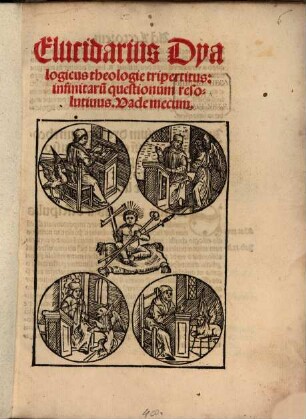 Elucidarius Dya
logicus theologie tripertitus:
infinitarũ questionum reso-
lutiuus. Vade mecum.